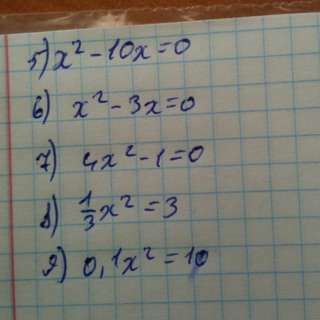 5) x² - 10x = 0
6) x² - 3x = 0
7) 4x² - 1 = 0
8) 1/3 x² = 3
9) 0,1x² = 10